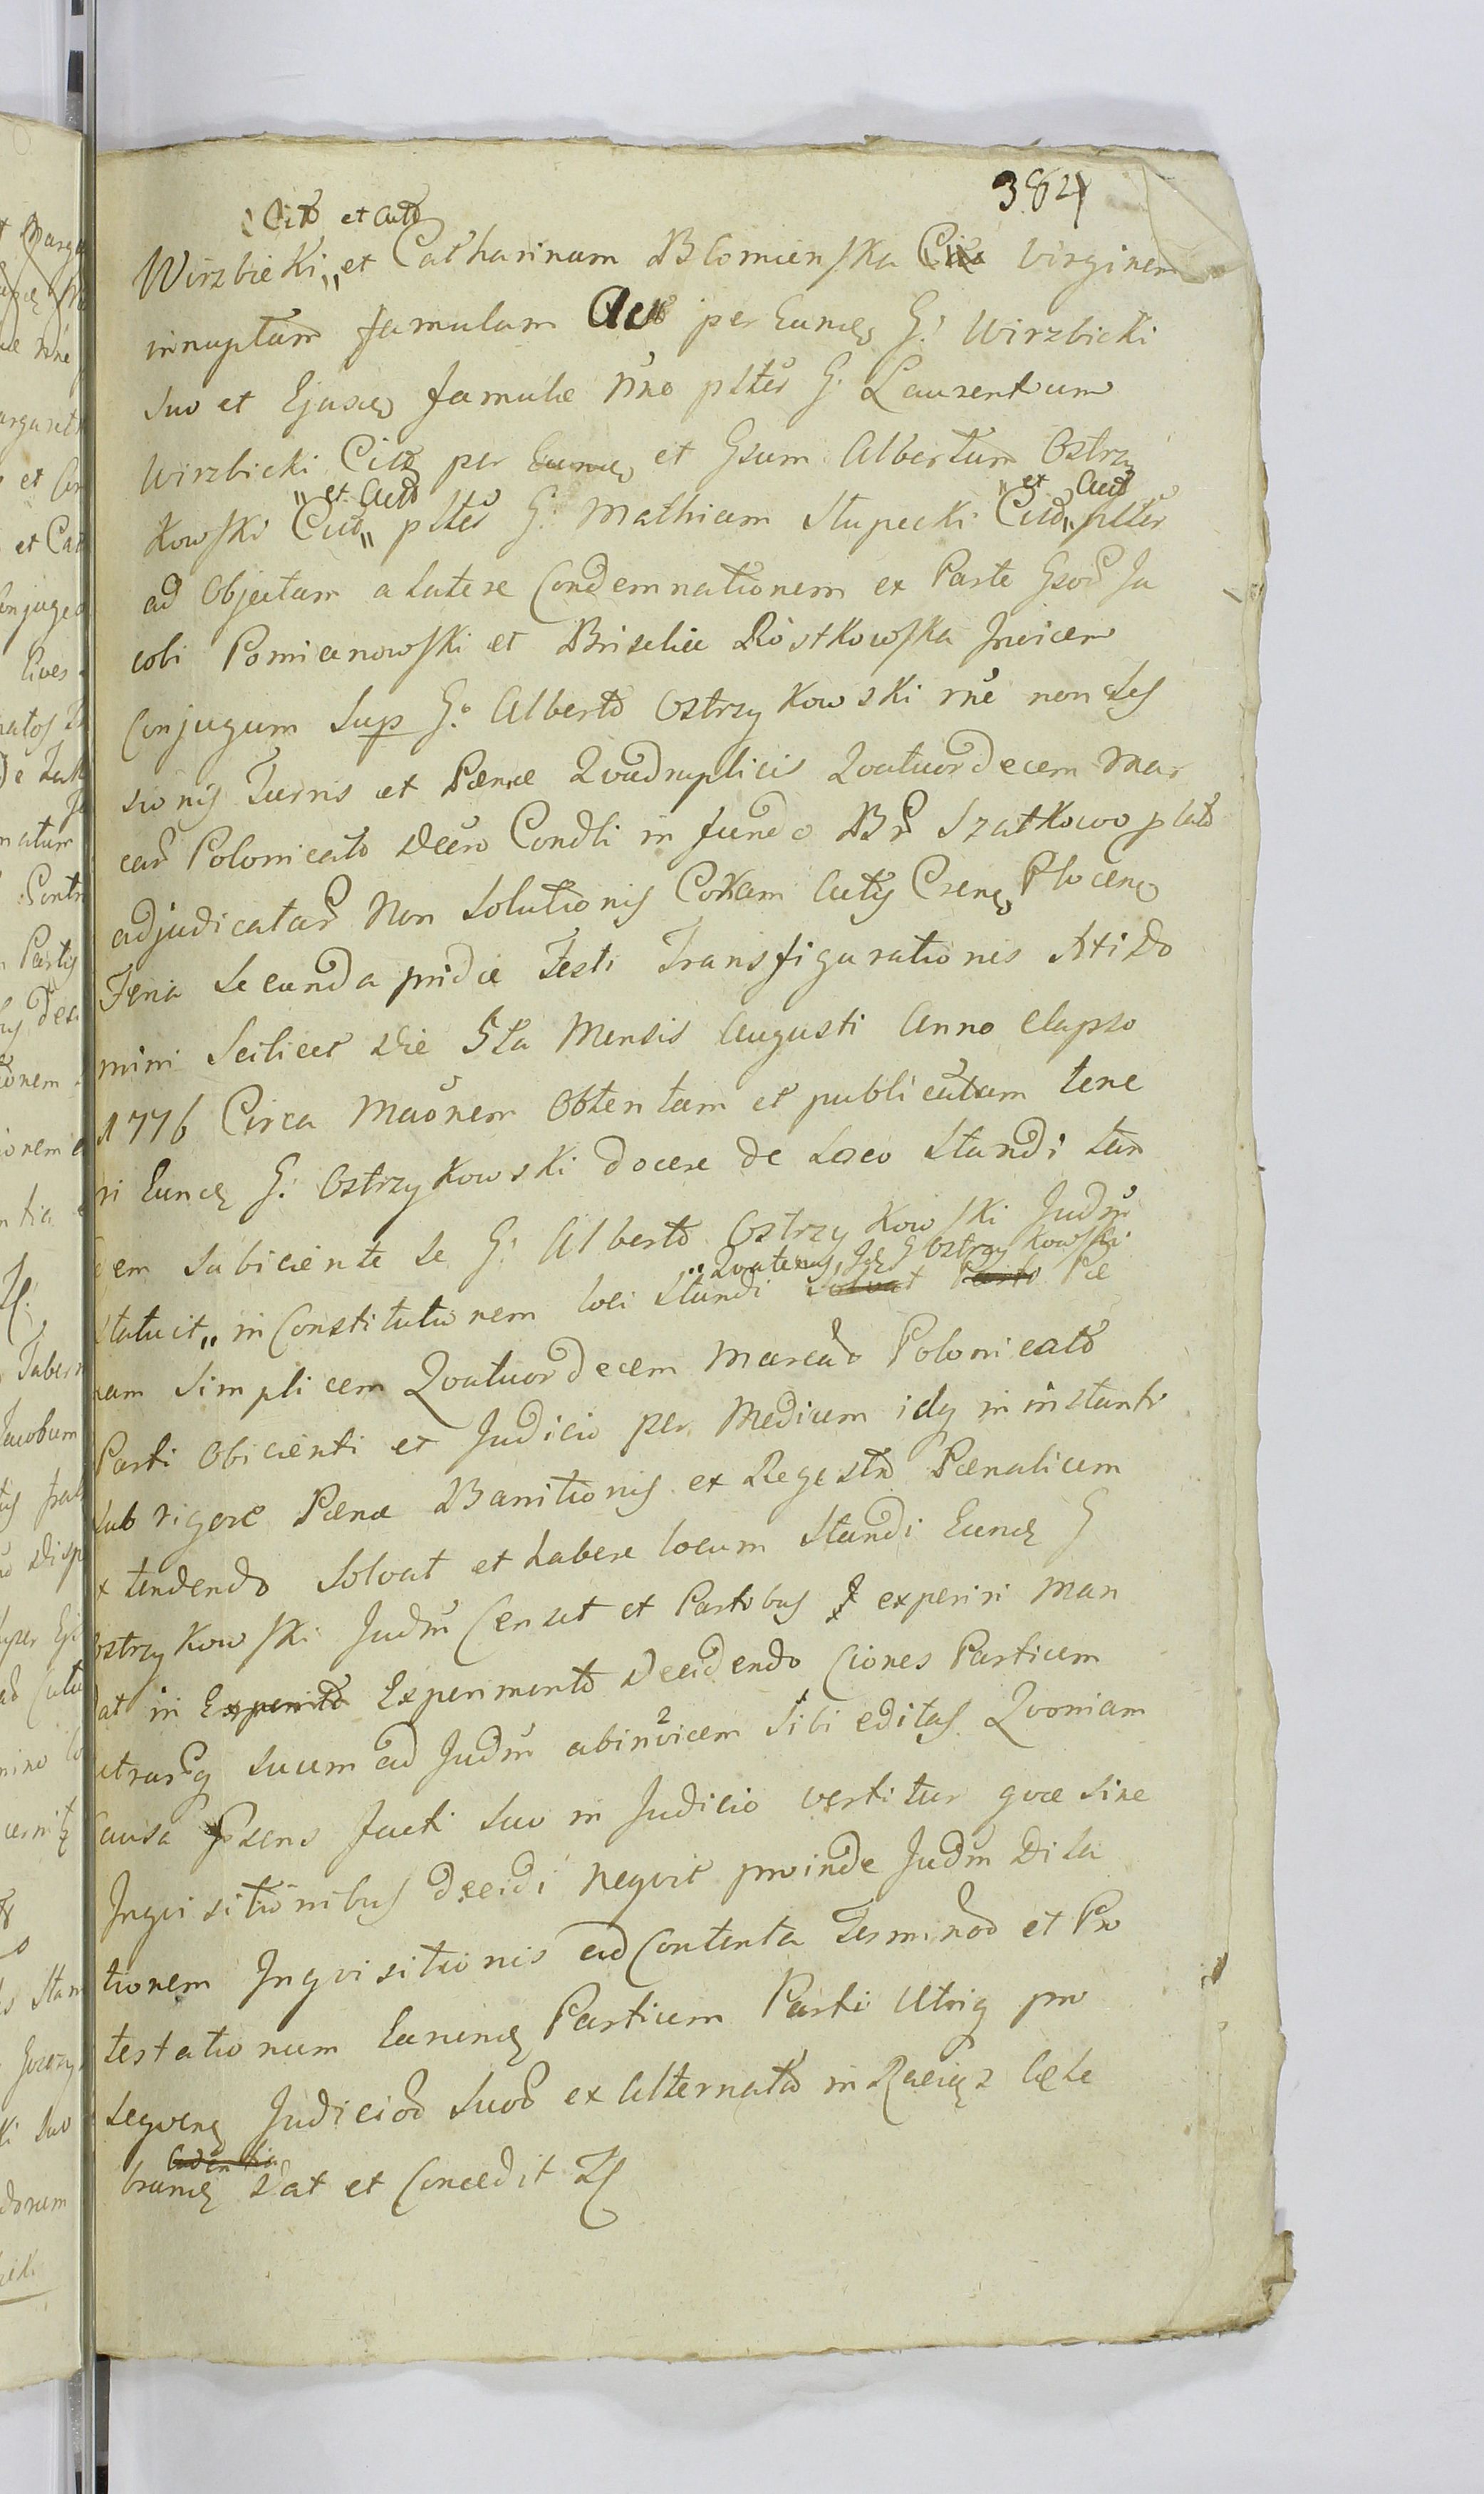 384
Citõ et Actõ
Wirzbicki „ et Catharinam Blomienska Cita Virginem
innuptam famulam Act per Eund G: Wirzbicki
suo et Ejusd famulæ nne plter G. Laurentium
Wirzbicki Cit per Eund et Gsum Albertum Ostrzy
„ et Act „ et Act
kowski Citõ „ plter G: Mathiam Slupecki Citõ „ plter
ad Objectam a Latere Condemnationem ex Parte Gsor Ja
cobi Pomianowski et Briselie Rostkowska Invicem
Conjugum Sup G: Alberto Ostrzykowski rne non Ses
sionis Turris et Pænæ Qvadruplicis Qvatuordecem Mar
car Polonicalõ Decro Condli in fundo Br Szatkowo plato
adjudicatar Non Solutionis Coram Actis Crens Plocens
Feria Secunda pridie Festi Transfigurationis Xti Do
mini Scilicet die 5ta Mensis Augusti Anno Elapso
1776 Circa Maonem Obtentam et publicatam tene
ri Eund G: Ostrzykowski docere de Loco Standi tan
dem Subiciente Se G: Alberto Ostrzykowski Judm
„ Qvatenus Id G Ostrzykowski
Statuit „ in Constitutionem Loci Standi Solvat Parti Pæ
nam Simplicem Qvatuordecem Marcar Polonicalõ
Parti Obicienti et Judicio per Medium idq in instanti
Sub rigore Pænæ Banitionis ex Regestro Pænalium
extendendo Solvat et habere locum Standi Eund G
Ostrzykowski Judm Censet et Partibus experiri man
dat in Experito Experimento Decidendo Ciones Partium
utrarq suum ad Judm abinvicem Sibi editas Qvoniam
Causa Psens facti Suo in Judicio vertitur qvæ Sine
Inqvisitionibus decidi neqvit proinde Judm Dila
tionem Inqvisitionis ad Contenta Terminor et Pro
testationum Earund Partium Parti Utriq pro
seqven Judicior Suor ex Alternata in Raciąz Cele
Cadentia
brand Dat et Concedit